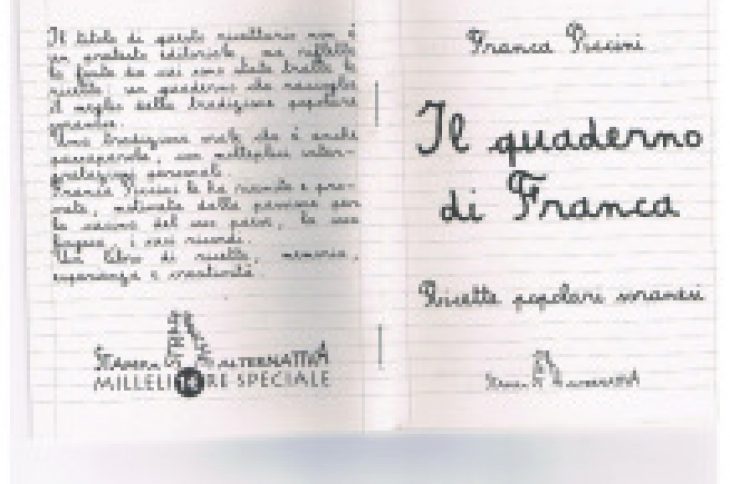 Il titolo di questo ricettario non è
un pretesto editoriale, ma riflette
la fonte da cui sono state tratte le
ricette: un quaderno che raccoglie
il meglio della tradizione popolare
soranese.
Una tradizione orale che è anche
passaparola, con molteplici inter-
pretazioni personali.
Franca Piccini le ha riunite e pro-
vate, motivata dalla passione per
la cucina del suo paese, la sua
lingua, i suoi ricordi.
Un libro di ricette, memoria,
esperienza e creatività.
STAMPA ALTERNATIVA
MILLELIRE SPECIALE
Franca Piccini
Il quaderno
di Franca
Ricette popolari soranesi
STAMPA ALTERNATIVA